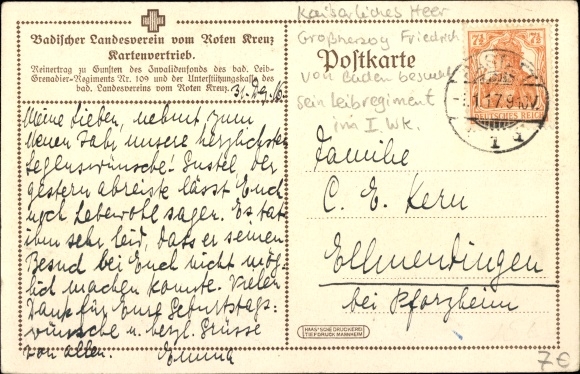 Badischer Landesverein vom Roten Kreuz
Kartenvertrieb.
Reinertrag zu Gunsten des Invalidenfonds des bad. Leib-
Grenadier-Regiments Nr. 109 und der Unterstützungskasse des
bad. Landesvereins vom Roten Kreuz.
31. Dez. 16.
Meine Lieben, nehmt zum
Neuen Jahr unsere herzlichsten
Segenswünsche! Gustel, der
gestern abreiste lässt Euch
noch Lebewohl sagen. Es tat
ihm sehr leid, dass er seinen
Besuch bei Euch nicht mög-
lich machen konnte. Vielen
Dank für Eure Geburtstags-
wünsche u. herzl. Grüsse
von allen. Emma
Kaiserliches Heer
Großherzog Friedrich
von Baden besucht
sein Leibregiment
im I. WK.
Postkarte
7½ 7½
DEUTSCHES REICH
Familie
C. E. Kern
Ellmendingen
bei Pforzheim
HMS'SCHE DRUCKEREI
TIEFDRUCK MANNHEIM
7€